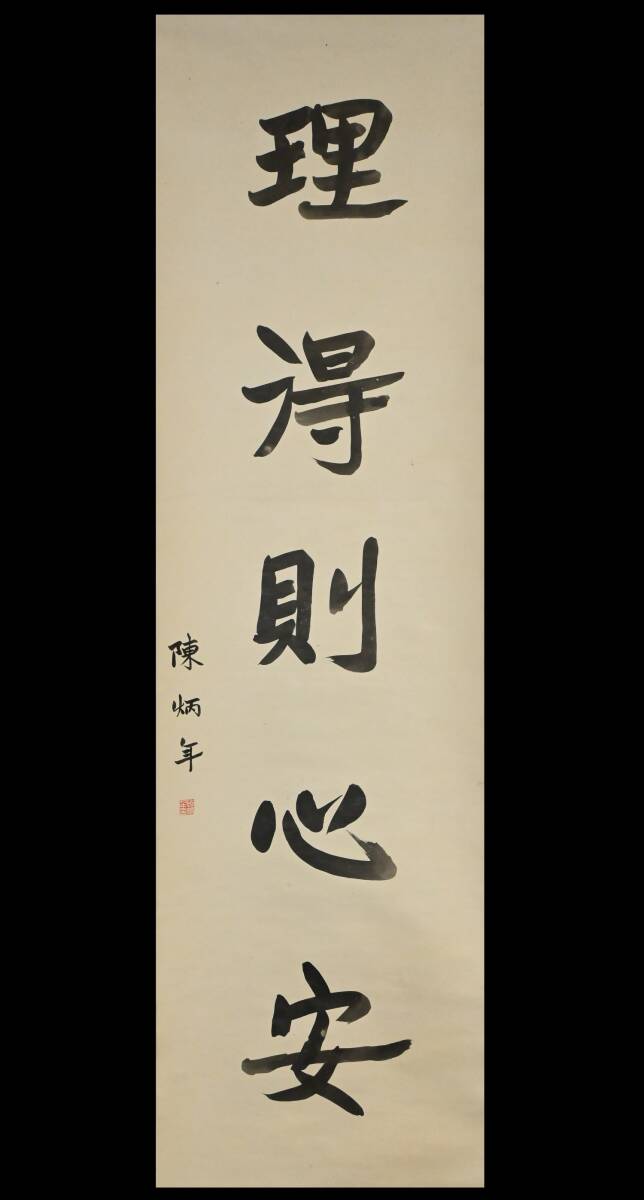 理得則心安
陳炳年